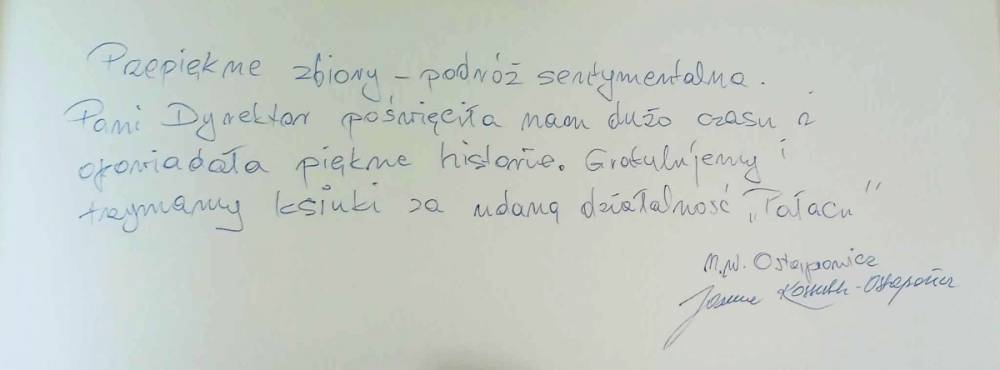 Przepiękne zbiory – podróż sentymentalna.
Pani Dyrektor poświęciła nam dużo czasu i
opowiadała piękne historie. Gratulujemy i
trzymamy ksiuki za udaną działalność „Pałacu”
M.W. Ostapowicz